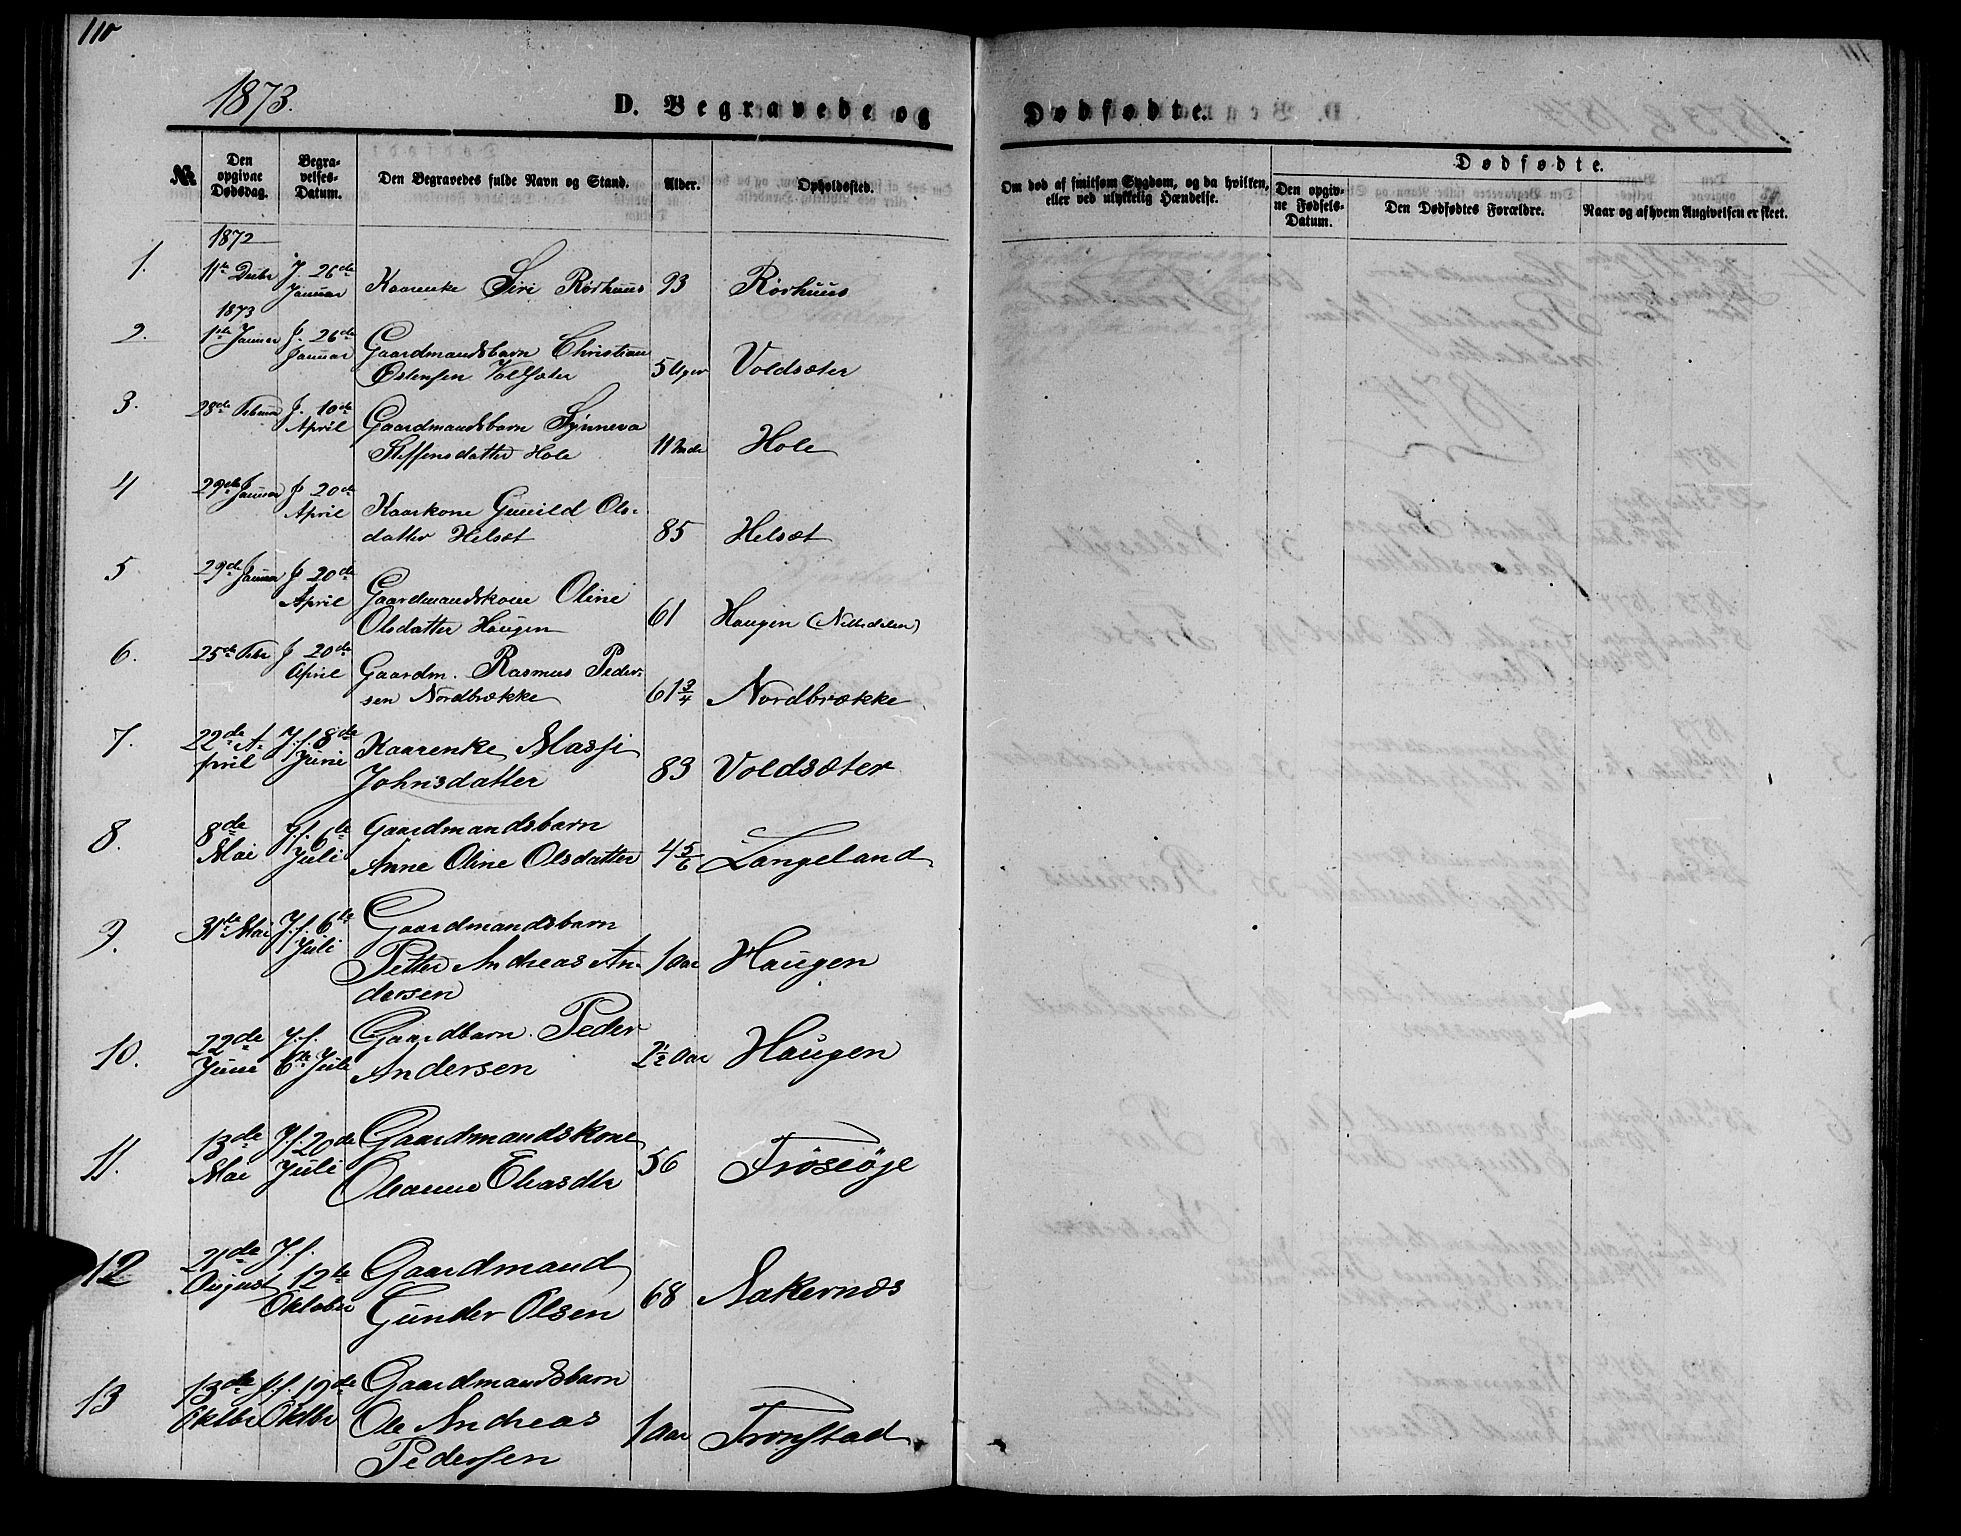 110
1873.
D. Begravede og
Dødfødte.
111
№
Den
opgivne
Dødsdag.
Begra-
velses-
Datum.
Den Begravedes fulde Navn og Stand.
Alder.
Opholdssted.
Om død af smitsom Sygdom, og da hvilken,
eller ved ulykkelig Hændelse.
Dødfødte.
Den opgiv-
ne Fødsels-
Datum.
Den Dødfødtes Forældre.
Naar og af hvem Angivelsen er skeet.
1872
1. 11te Decbr J. 26de
Januar Kaarenke Siri Rörhuus 93 Rörhuus
1873
2. 1ste Januar J. 26de
Januar Gaardmandsbarn Christian
Østensen Volsæter 5 Uger Voldsæter
3. 28de Februar J. 10de
April Gaardmandsbarn Synneva
Steffensdatter Hole 11 Mdr Hole
4 29de Januar J 20de
April Kaarkone Gunild Ols-
datter Helset 85 Helsæt
5 29de Januar J 20de
April Gaardmandskone Oline
Olsdatter Haugen 61 Haugen (Nebbedalen)
6. 25de Febr J 20de
April Gaardm. Rasmus Peder-
sen Nordbrække 61 3/4 Nordbrække
7. 22de A-
pril J.f. 8de
Juni Kaarenke Massi
Johnsdatter 83 Voldsæter
8. 8de
Mai J.f. 6te
Juli Gaardmandsbarn
Anne Oline Olsdatter 4 5/6 Langeland
9. 31te Mai J.f. 6te
Juli Gaardmandsbarn
Petter Andreas An-
dersen 1 Aar Haugen
10. 22de
Juni J.f.
6te Juli Gaardbarn Peder
Andersen 2 1/2 Aar Haugen
11. 13de
Mai J.f. 20de
Juli Gaardmandskone
Oleanne Eliasdtr 56 Tröseöje
12 21de
August J.f.
12te
Oktober Gaardmand
Gunder Olsen 68 Aakernæs
13 13de
Oktbr J.f. 19de
Oktbr Gaardmandsbarn
Ole Andreas
Pedersen 1 Aar Tronstad